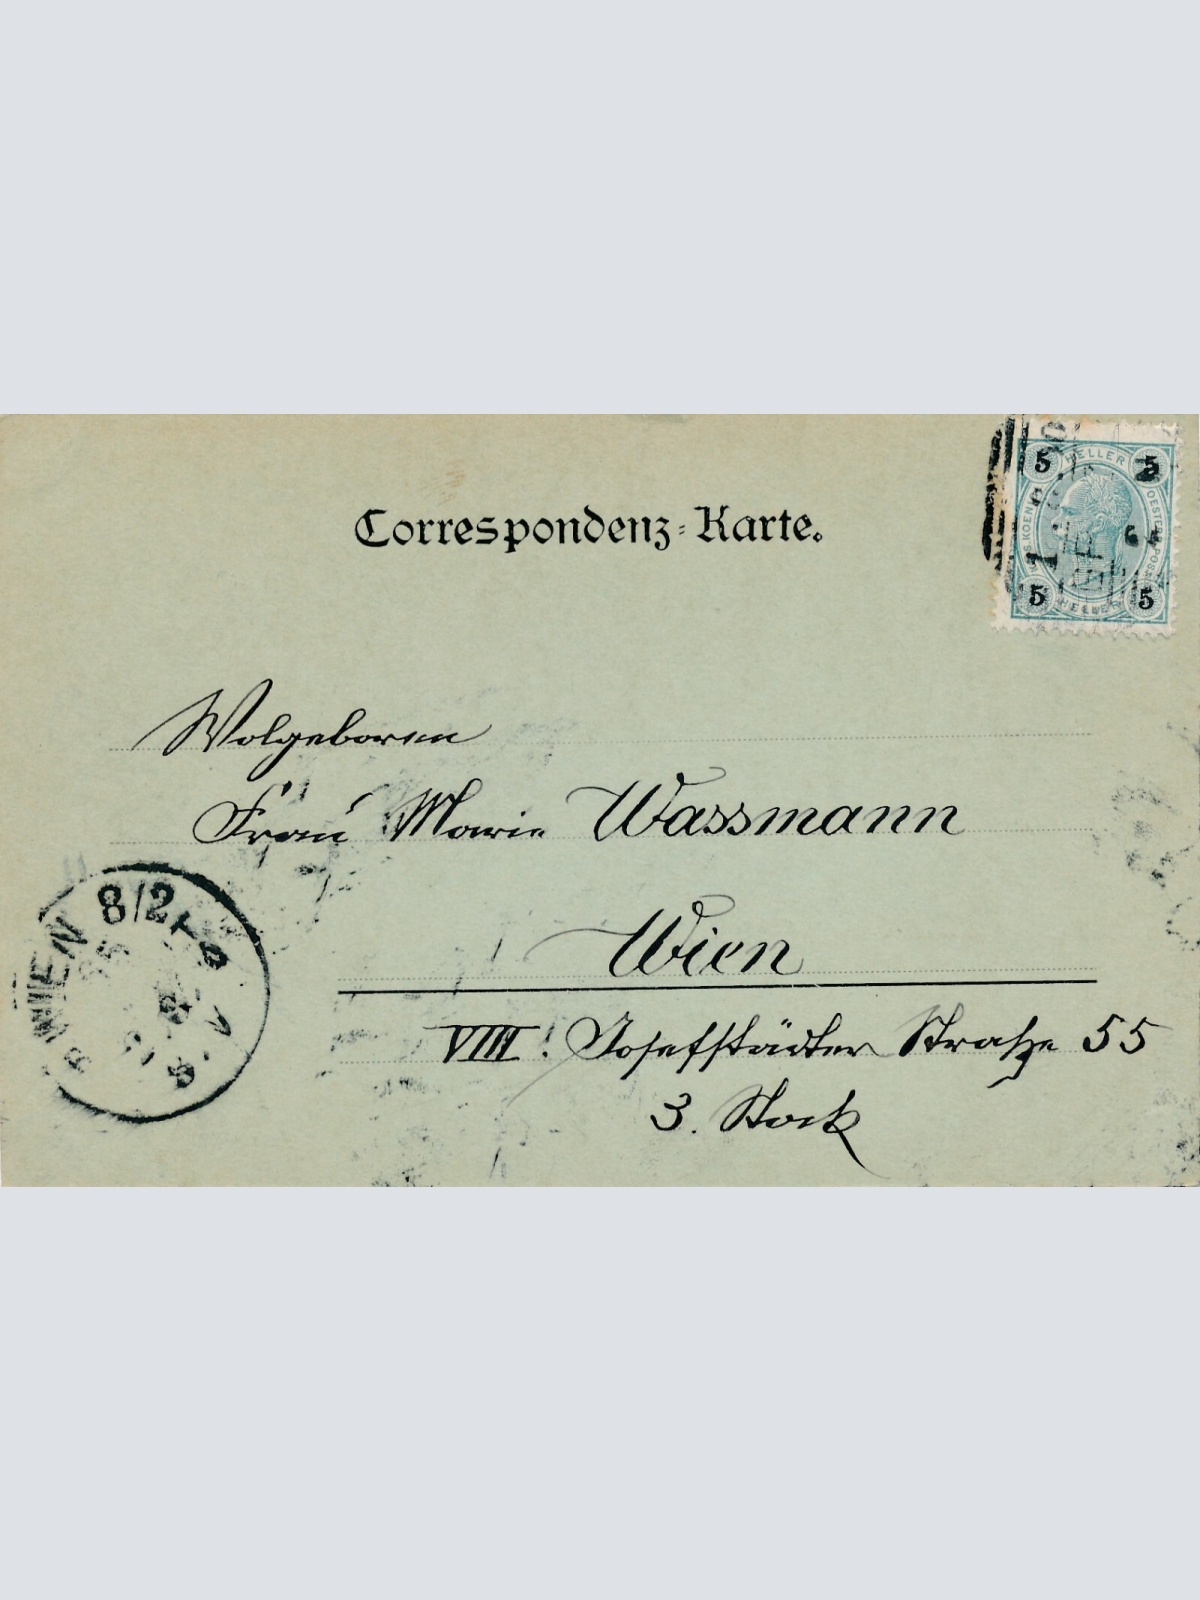 Correspondenz-Karte.
5 HELLER 5
5 HELLER 5
Wolgeboren
Frau Marie Wassmann
Wien
VIII. Josefstädter Straße 55
3. Stock
WIEN 8/2